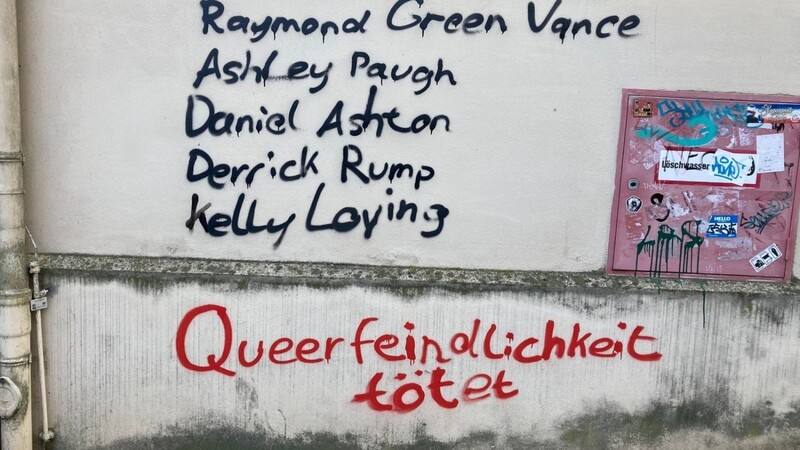 Raymond Green Vance
Ashley Paugh
Daniel Ashton
Derrick Rump
Kelly Loving
Löschwasser
HELLO
Queerfeindlichkeit
tötet